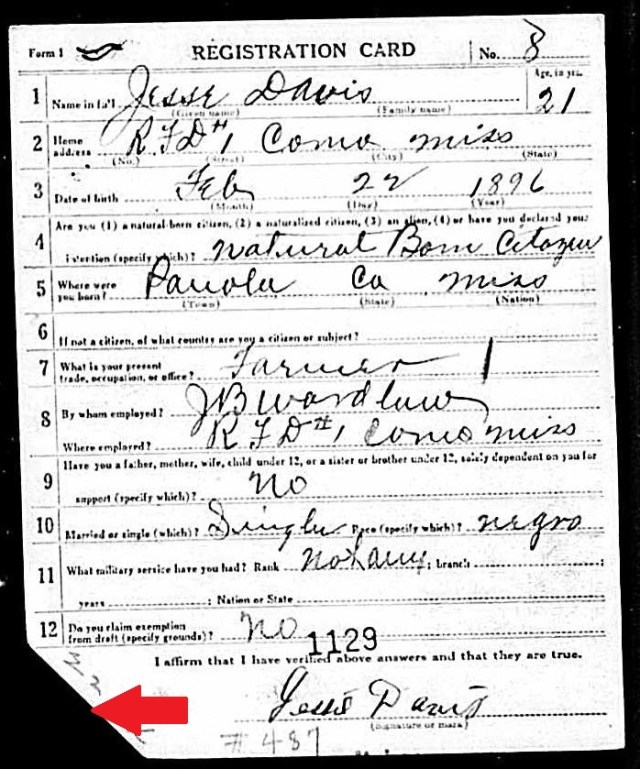 Form 1 REGISTRATION CARD No. 8
Age, in yrs.
1 Name in full Jesse Davis 21
(Given name) (Family name)
2 Home address R.F.D #1 Como Miss
(No.) (Street) (City) (State)
3 Date of birth Feb 22 1896
(Month) (Day) (Year)
4 Are you (1) a natural-born citizen, (2) a naturalized citizen, (3) an alien, (4) or have you declared your
intention (specify which)? Natural Born Citozen
5 Where were you born? Panola Co Miss
(Town) (State) (Nation)
6 If not a citizen, of what country are you a citizen or subject?
7 What is your present trade, occupation, or office? Farmer 1
8 By whom employed? JB Wardlaw
Where employed? R F D #1 Como Miss
9 Have you a father, mother, wife, child under 12, or a sister or brother under 12, solely dependent on you for
support (specify which)? No
10 Married or single (which)? Single Race (specify which)? negro
11 What military service have you had? Rank Not any ; branch ;
years ; Nation or State
12 Do you claim exemption from draft (specify grounds)? No
1129
I affirm that I have verified above answers and that they are true.
Jesse Davis
(Signature or mark)
#487